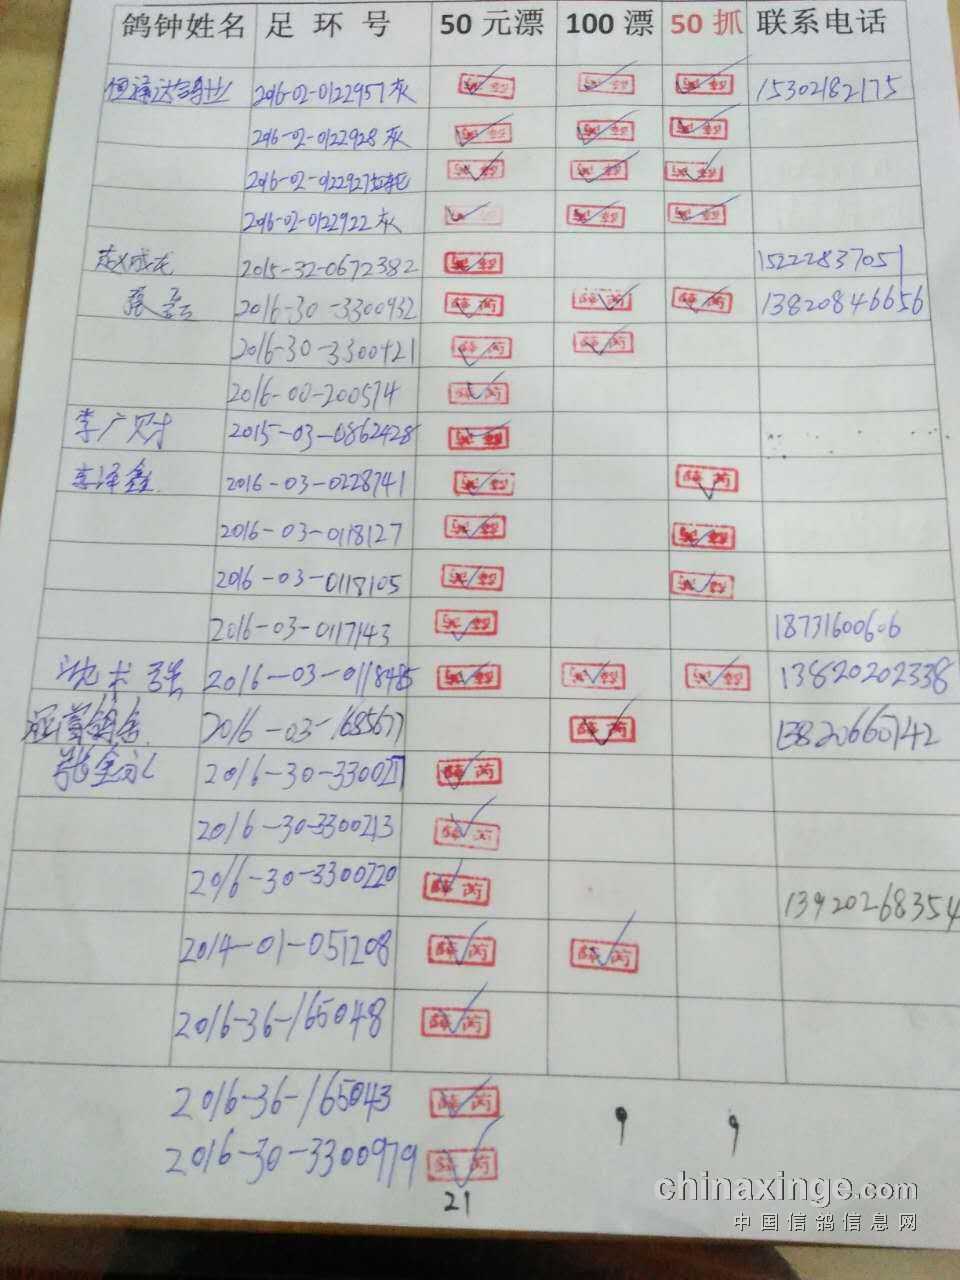 鸽钟姓名 足环号 50元漂 100漂 50抓 联系电话
恒通达鸽业 2016-02-0122957灰 15302182175
2016-02-0122928灰
2016-02-0122927
2016-02-0122922灰
赵成龙 2015-32-0672382 15222837051
张磊 2016-30-3300932 13820846656
2016-30-3300421
2016-00-200574
李广财 2015-03-0862428
李泽鑫 2016-03-0228741
2016-03-0118127
2016-03-0118105
2016-03-0117143 18731600606
沈术强 2016-03-0118485 13820202338
2016-03-1685677 13820660142
2016-30-3300211
2016-30-3300213
2016-30-3300220 13920268354
2014-01-051208
2016-36-165048
2016-36-165043
2016-30-3300979
21 9 9
chinaxinge.com
中国信鸽信息网